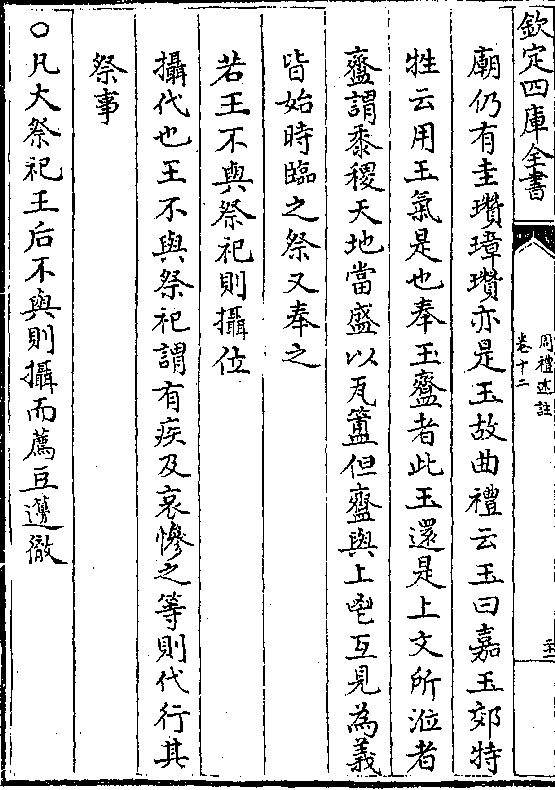 欽定四庫全書
周禮述註
卷十二
廟仍有圭瓚璋瓚亦是玉故曲禮云玉曰嘉玉郊特
牲云用玉氣是也奉玉齍者此玉還是上文所涖者
齍謂黍稷天地當盛以瓦簠但齍與上鬯互見為義
皆始時臨之祭又奉之
若王不與祭祀則攝位
攝代也王不與祭祀謂有疾及哀慘之等則代行其
祭事
○凡大祭祀王后不與則攝而薦豆籩徹